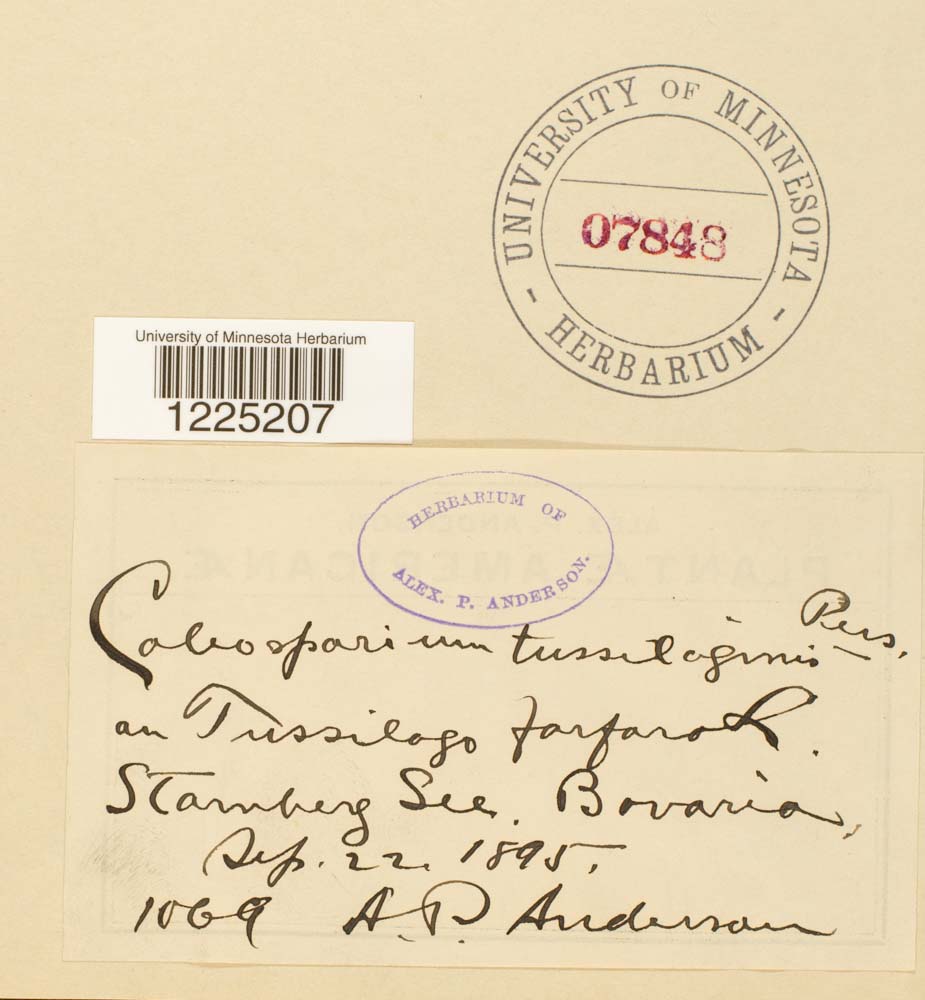 UNIVERSITY OF MINNESOTA
- HERBARIUM -
07848
University of Minnesota Herbarium
1225207
HERBARIUM OF
ALEX. P. ANDERSON.
Coleosporium tussilaginis Pers.
an Tussilago farfara L.
Starnberg See. Bavaria,
Sep. 22. 1895.
1069 A. P. Anderson